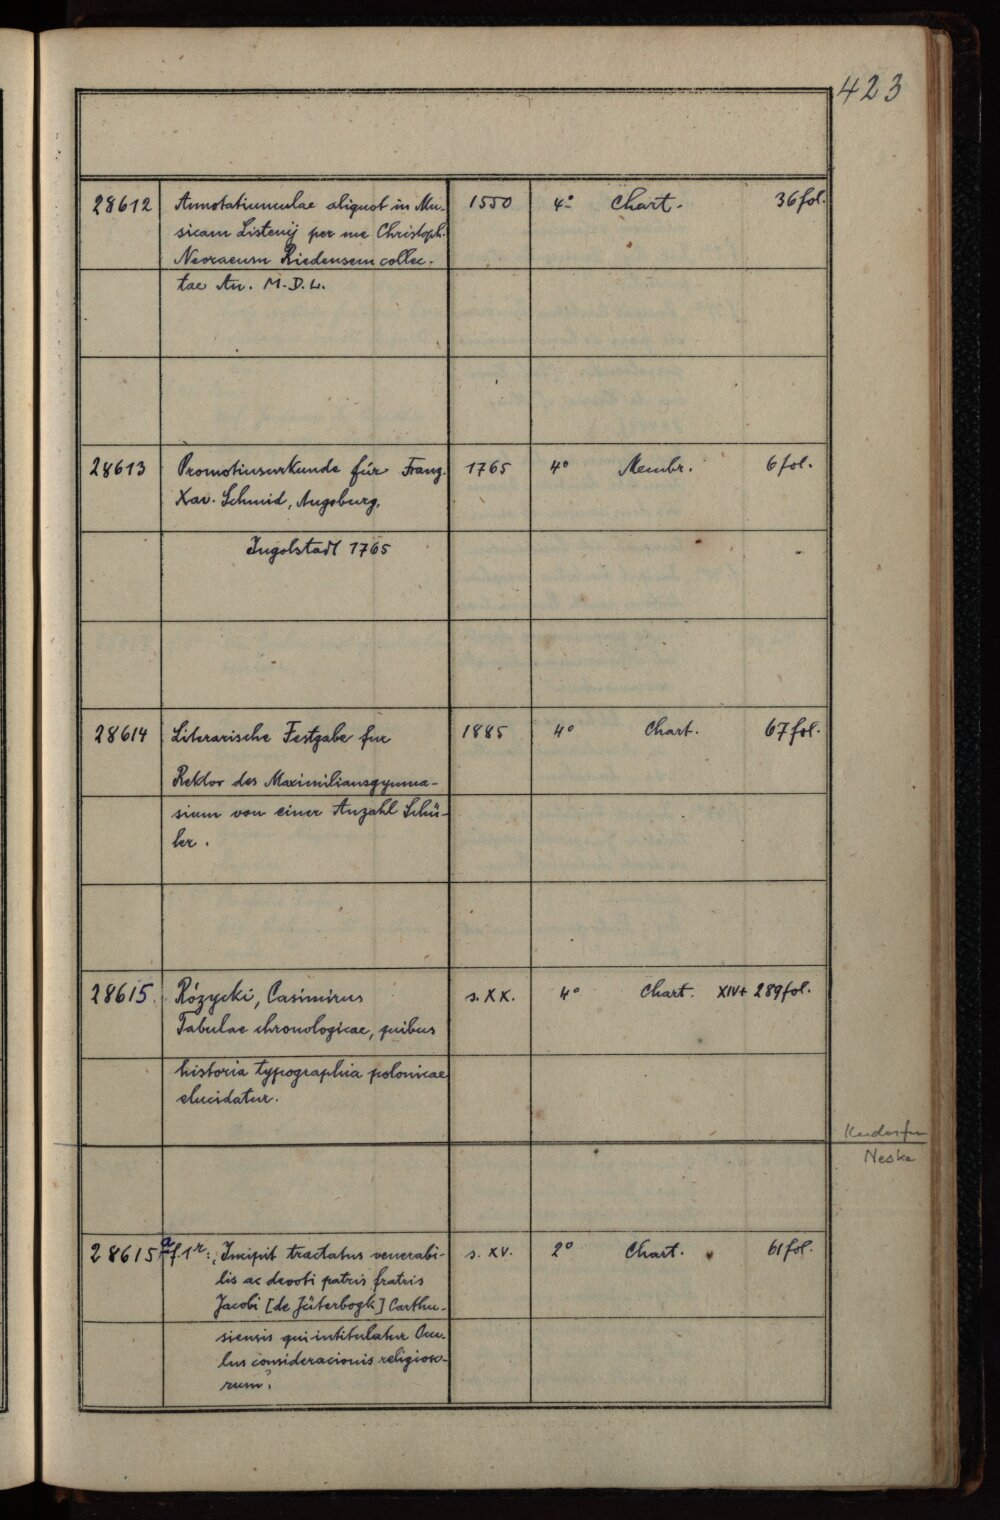 423
28612 Annotatiunculae aliquot in Mu- 1550 4° Chart. 36 fol.
sicam Listenij per me Christoph.
Neoraeum Riedensem collec-
tae An. M.D.L.
28613 Promotionsurkunde für Franz. 1765 4° Membr. 6 fol.
Xav. Schmid, Augsburg.
Ingolstadt 1765
28614 Literarische Festgabe fur 1885 4° Chart. 67 fol.
Rektor des Maximiliansgymna-
sium von einer Anzahl Schü-
ler.
28615. Rózycki, Casimirus s. XX. 4° Chart. XIV+ 289 fol.
Tabulae chronologicae, quibus
historia typographia polonicae
elucidatur.
Neske
28615a f. 1r: Incipit tractatus venerabi- s. XV. 2° Chart. 61 fol.
lis ac devoti patris fratris
Jacobi [de Jüterbogk] Carthu-
siensis qui intitulatur Ocu-
lus consideracionis religioso-
rum.